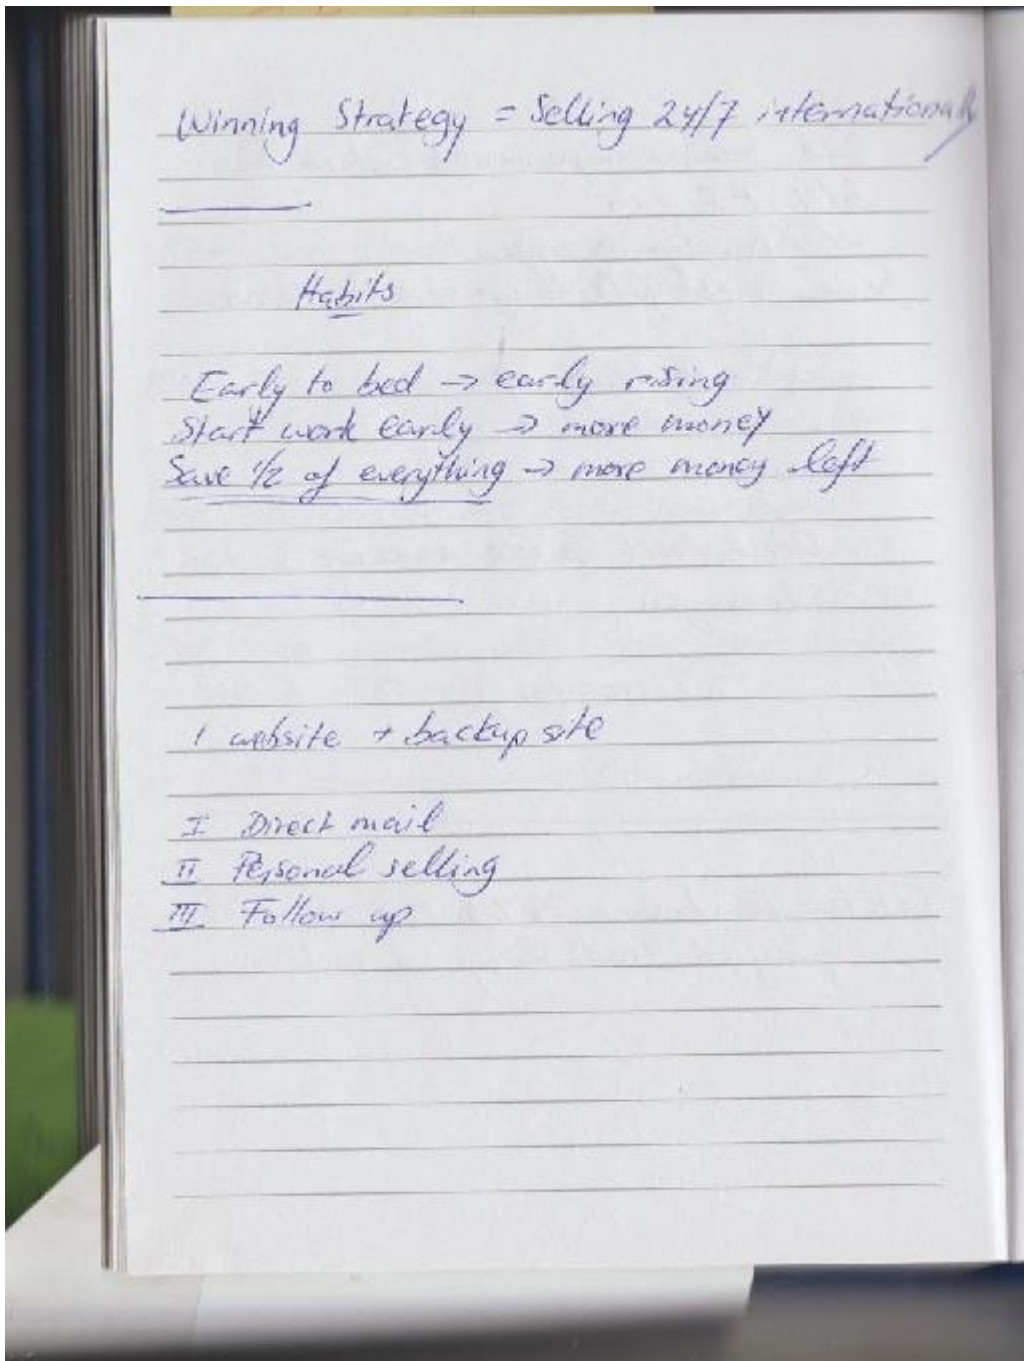 Winning Strategy = Selling 24/7 internationally
Habits
Early to bed → early rising
Start work early → more money
Save 1/2 of everything → more money left
1 website + backup site
I Direct mail
II Personal selling
III Follow up